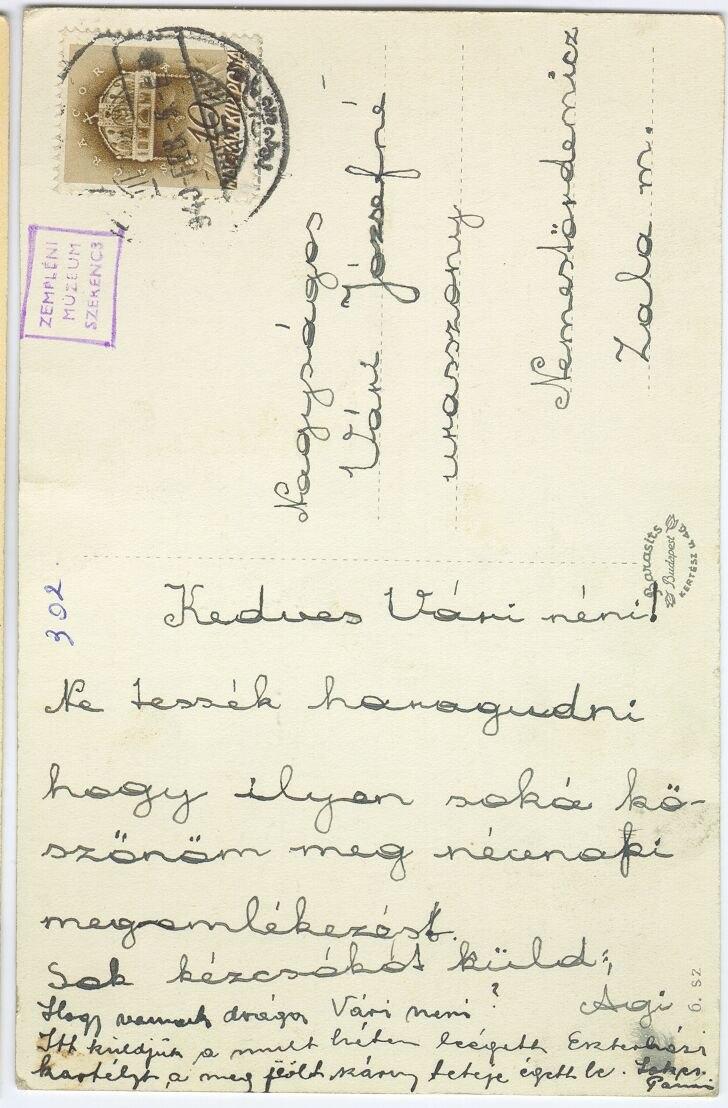 MAGYAR KIR. POSTA
10
940 FEB
ZEMPLÉNI
MÚZEUM
SZERENCS
Nagyságos
Vári Józsefné
urasszony
Nemestördemicz
Zala m.
Barasits
Budapest
KERTÉSZ U.
302
Kedves Vári néni!
Ne tessék haragudni
hogy ilyen soká kö-
szönöm meg névnapi
megemlékezést.
Sok kézcsókot küld:
Agi
Hogy vannak drága Vári neni?
Itt küldjük a mult héten leégett Eszterházi
kastélyt, a meg jelölt szárny teteje égett le.
6. sz